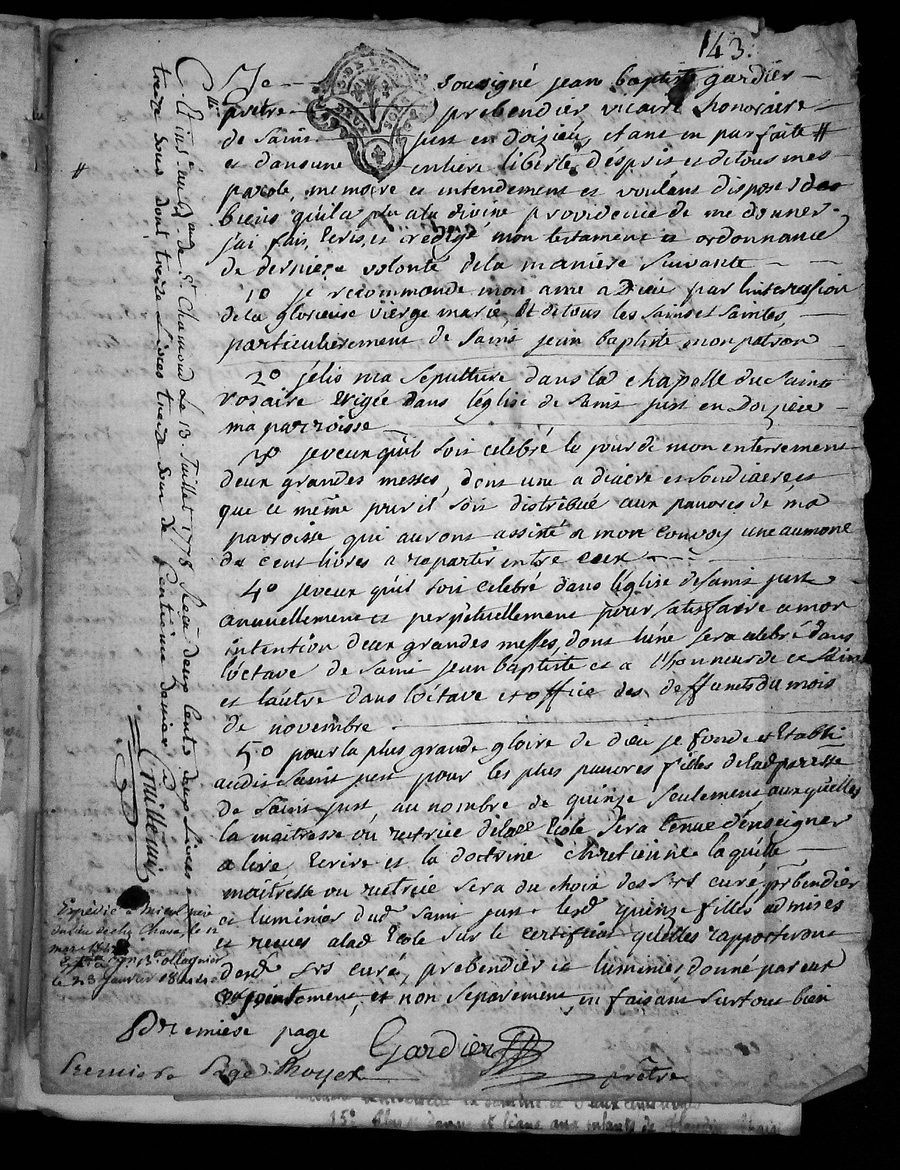 143
Je sousigné jean baptiste gardier
prêtre prébendier vicaire honoraire
de Saint just en doizieu, etant en parfaite #
et dans une entiere liberté despris et de tous mes
parole, memoire et intendement et voulant disposé des
biens quil a plu a la divine providence de me donner
jai fait, Ecris, et redigé mon testament et ordonnance
de derniere volonté de la maniere suivante
1º je recommande mon ame a Dieu par lintercession
de la glorieuse vierge marie, et de tous les Saints et Saintes
particulierement de Saint jean baptiste mon patron
2º jélis ma sepulture dans la chapelle du Saint
rosaire Erigée dans léglise de Saint just en Doizieu
ma parroisse
3º je veux qu'il soit celebré le jour de mon enterrement
deux grandes messes, dont une a diacre et soudiacre et
que ce même jour il soit distribué aux pauvres de ma
parroisse qui auront assisté a mon convoy une aumone
de cent livres a repartir entre eux
4º je veux qu'il soit celebré dans léglise de Saint just
annuellement et perpetuellement pour satisfaire a mon
intention deux grandes messes, dont lune sera celebré dans
l'octave de Saint jean baptiste et a l'honneur de ce Saint
et lautre dans loctave et office des deffunts du mois
de novembre
5º pour la plus grande gloire de dieu je fonde et Etabli
audit Saint just pour les plus pauvres filles de lad parroisse
de Saint just, au nombre de quinze seulement auxquelles
la maitresse ou rectrice de lad Ecole sera tenue denseigner
a lire, Ecrire et la doctrine chretienne laquelle
maitresse ou rectrice sera du choix des srs curé, prébendier
et luminier dud Saint just lesd quinze filles admises
et recues a lad Ecole sur le certificat quelles rapporteront
desd srs curé, prebendier et luminier donné par eux
conjointement, et non separement en faisant surtout bien
premiere page Gardier
prêtre
Premiere Page Royet
#
Clé et insé. au G de St Chamond Le 13 Juillet 1778 Recu deux Cents deux Livres
treize sous dont treize Livres treize sous de Centieme denier
Guillemin
Expédié a
mars
le 23 janvier